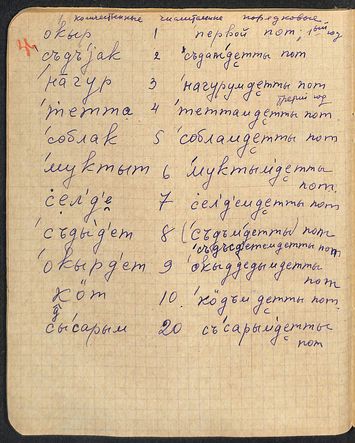 количественные числительные порядковые
4.
о́кыр 1 первой пот, 1ый год
съдъ́јак 2 'съдамде́тты пот
'нагур 3 'нагурумдетты пот
третий год
'тетта 4 'теттамдетты пот
'соблак 5 'собламдетты пот
'муктыт 6 'муктымдетты
пот
'сел'д'е 7 сел'демдетты пот
'съды́д'ет 8 ('съдъмдетты) пот
'съдъдетемдетты пот
'о́кырд'ет 9 'окыдъдедымдетты
пот
кӧт 10. 'кӧдъмдетты пот.
сы́сарым 20 съ'сарымдетты
пот